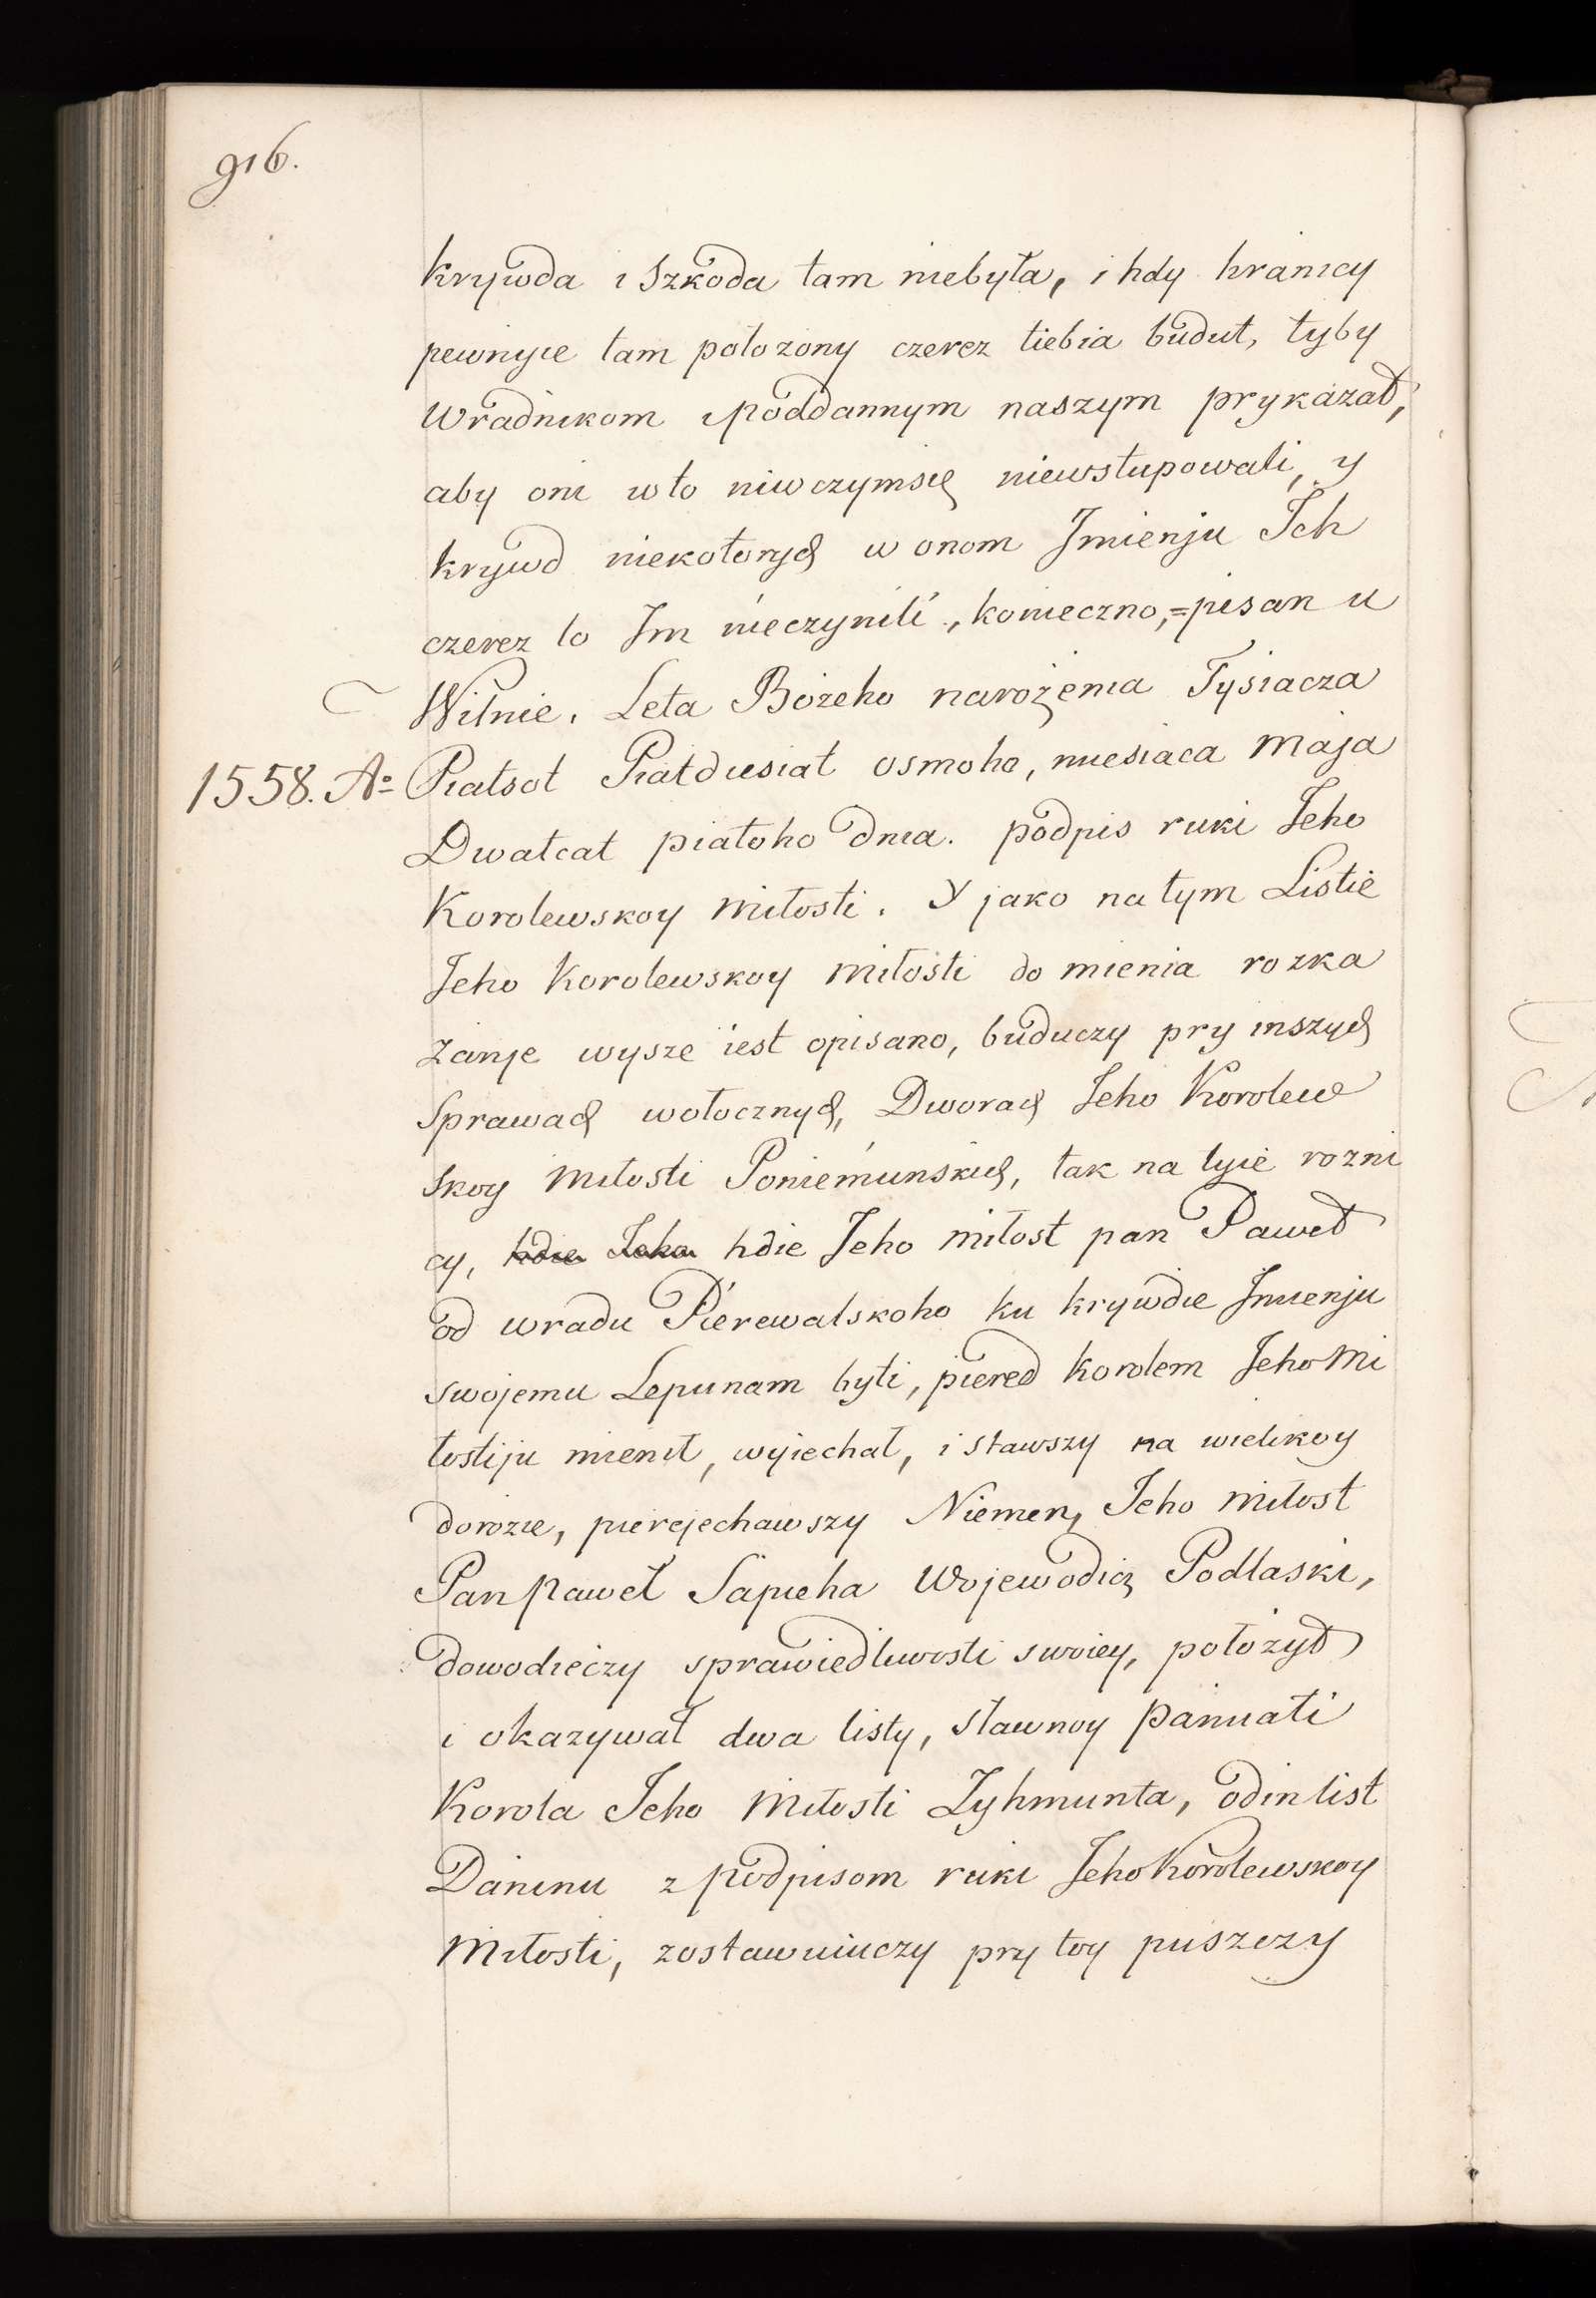 916.
krywda i Szkoda tam niebyła, i hdy hranicy
pewnyie tam położony czerez tiebia budut, tyby
Wradnikom i poddannym naszym prykazał,
aby oni w to niwczymsię niewstupowali, y
krywd niekotorych w onom Jmienju Jch
czerez to Jm nieczynili, konieczno,=pisan u
Wilnie. Leta Bożeho narożenia Tysiacza
1558. Aº Piatsot Piatdiesiat osmoho, miesiaca Maja
Dwatcat piatoho dnia. podpis ruki Jeho
Korolewskoy Miłosti. Y jako na tym Listie
Jeho Korolewskoy Miłosti do mienia rozka
zanje wysze iest opisano, buduczy pry inszych
Sprawach wołocznych, Dworach Jeho Korolew
skoy Miłosti Poniemunskich, tak na tyie rozni
cy, hdie Jeho hdie Jeho Miłost pan Paweł
od wradu Pierewalskoho ku krywdie Jmienju
swojemu Lepunam byti, piered korolem Jeho Mi
łostiju mienił, wyiechał, i stawszy na wielikoy
dorozie, pierejechawszy Niemen, Jeho Miłost
Pan Paweł Sapieha Wojewodicz Podlaski,
dowodieczy sprawiedliwosti swoiey, położył
i okazywał dwa listy, sławnoy pamiati
Korola Jeho Miłosti Zyhmunta, odin list
Daninu z podpisom ruki Jeho Korolewskoy
Miłosti, zostawuiuczy pry toy puszczy